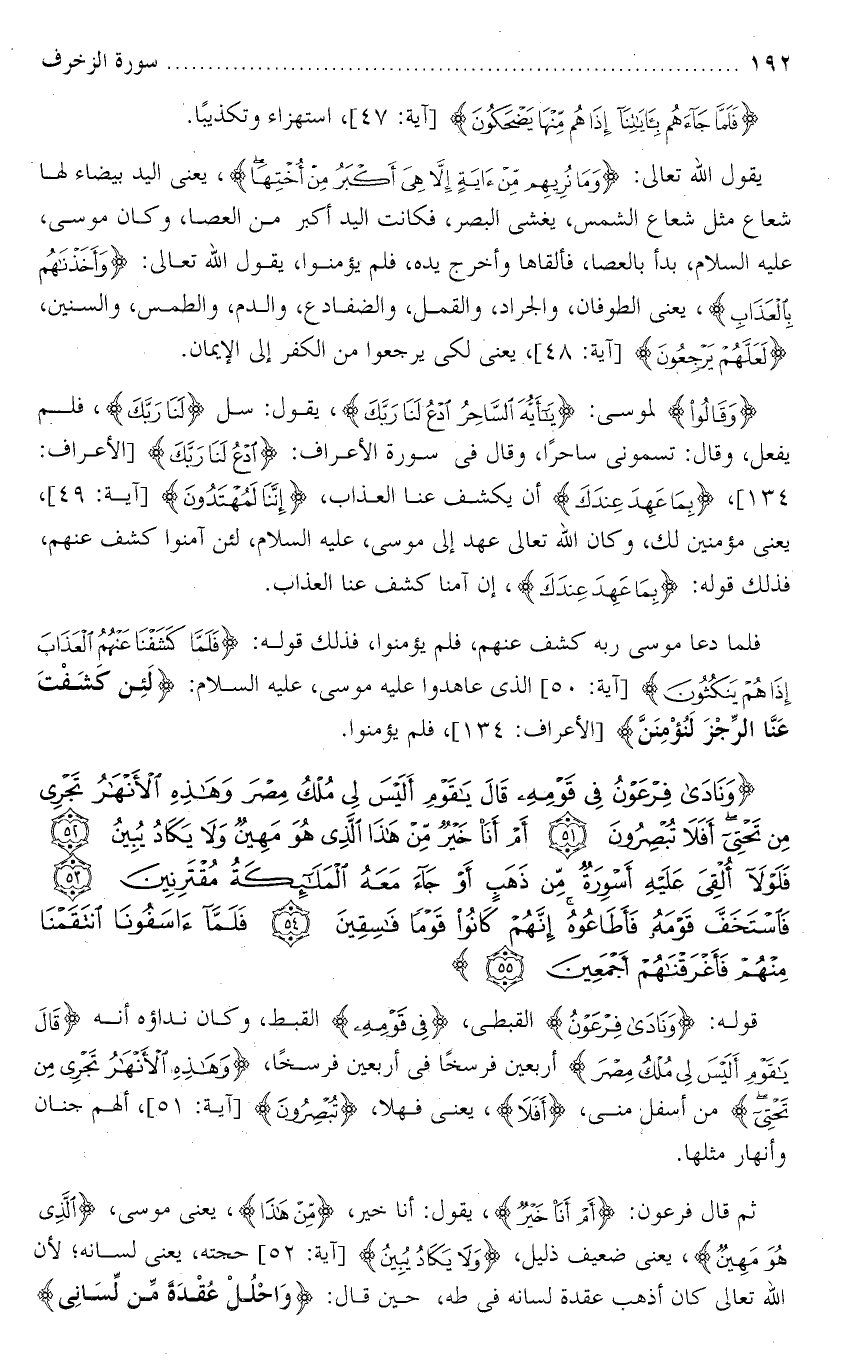 ١٩٢ ........................................................................ سورة الزخرف
﴿فَلَمَّا جَاءَهُم بِـَٔايَـٰتِنَآ إِذَا هُم مِّنْهَا يَضْحَكُونَ﴾ [آية: ٤٧]، استهزاء وتكذيبًا.
يقول الله تعالى: ﴿وَمَا نُرِيهِم مِّنْ ءَايَةٍ إِلَّا هِىَ أَكْبَرُ مِنْ أُخْتِهَا ۖ﴾، يعنى اليد بيضاء لها
شعاع مثل شعاع الشمس، يغشى البصر، فكانت اليد أكبر من العصا، وكان موسى،
عليه السلام، بدأ بالعصا، فألقاها وأخرج يده، فلم يؤمنوا، يقول الله تعالى: ﴿وَأَخَذْنَـٰهُم
بِٱلْعَذَابِ﴾، يعنى الطوفان، والجراد، والقمل، والضفادع، والدم، والطمس، والسنين،
﴿لَعَلَّهُمْ يَرْجِعُونَ﴾ [آية: ٤٨]، يعنى لكى يرجعوا من الكفر إلى الإيمان.
﴿وَقَالُوا۟﴾ لموسى: ﴿يَـٰٓأَيُّهَ ٱلسَّاحِرُ ٱدْعُ لَنَا رَبَّكَ﴾، يقول: سل ﴿لَنَا رَبَّكَ﴾، فلم
يفعل، وقال: تسمونى ساحرًا، وقال فى سورة الأعراف: ﴿ٱدْعُ لَنَا رَبَّكَ﴾ [الأعراف:
١٣٤]، ﴿بِمَا عَهِدَ عِندَكَ﴾ أن يكشف عنا العذاب، ﴿إِنَّنَا لَمُهْتَدُونَ﴾ [آية: ٤٩]،
يعنى مؤمنين لك، وكان الله تعالى عهد إلى موسى، عليه السلام، لئن آمنوا كشف عنهم،
فذلك قوله: ﴿بِمَا عَهِدَ عِندَكَ﴾، إن آمنا كشف عنا العذاب.
فلما دعا موسى ربه كشف عنهم، فلم يؤمنوا، فذلك قوله: ﴿فَلَمَّا كَشَفْنَا عَنْهُمُ ٱلْعَذَابَ
إِذَا هُمْ يَنكُثُونَ﴾ [آية: ٥٠] الذى عاهدوا عليه موسى، عليه السلام: ﴿لَئِن كَشَفْتَ
عَنَّا الرِّجْزَ لَنُؤْمِنَنَّ﴾ [الأعراف: ١٣٤]، فلم يؤمنوا.
﴿وَنَادَىٰ فِرْعَوْنُ فِى قَوْمِهِۦ قَالَ يَـٰقَوْمِ أَلَيْسَ لِى مُلْكُ مِصْرَ وَهَـٰذِهِ ٱلْأَنْهَـٰرُ تَجْرِى
مِن تَحْتِىٓ ۖ أَفَلَا تُبْصِرُونَ ٥١ أَمْ أَنَا۠ خَيْرٌ مِّنْ هَـٰذَا ٱلَّذِى هُوَ مَهِينٌ وَلَا يَكَادُ يُبِينُ ٥٢
فَلَوْلَآ أُلْقِىَ عَلَيْهِ أَسْوِرَةٌ مِّن ذَهَبٍ أَوْ جَآءَ مَعَهُ ٱلْمَلَـٰٓئِكَةُ مُقْتَرِنِينَ ٥٣
فَٱسْتَخَفَّ قَوْمَهُۥ فَأَطَاعُوهُ ۚ إِنَّهُمْ كَانُوا۟ قَوْمًا فَـٰسِقِينَ ٥٤ فَلَمَّآ ءَاسَفُونَا ٱنتَقَمْنَا
مِنْهُمْ فَأَغْرَقْنَـٰهُمْ أَجْمَعِينَ ٥٥ ﴾
قوله: ﴿وَنَادَىٰ فِرْعَوْنُ﴾ القبطى، ﴿فِى قَوْمِهِۦ﴾ القبط، وكان نداؤه أنه ﴿قَالَ
يَـٰقَوْمِ أَلَيْسَ لِى مُلْكُ مِصْرَ﴾ أربعين فرسخًا فى أربعين فرسخًا، ﴿وَهَـٰذِهِ ٱلْأَنْهَـٰرُ تَجْرِى مِن
تَحْتِىٓ ۖ﴾ من أسفل منى، ﴿أَفَلَا﴾، يعنى فهلا، ﴿تُبْصِرُونَ﴾ [آية: ٥١]، ألهم جنان
وأنهار مثلها.
ثم قال فرعون: ﴿أَمْ أَنَا۠ خَيْرٌ﴾، يقول: أنا خير، ﴿مِّنْ هَـٰذَا﴾، يعنى موسى، ﴿ٱلَّذِى
هُوَ مَهِينٌ﴾، يعنى ضعيف ذليل، ﴿وَلَا يَكَادُ يُبِينُ﴾ [آية: ٥٢] حجته، يعنى لسانه؛ لأن
الله تعالى كان أذهب عقدة لسانه فى طه، حين قال: ﴿وَاحْلُلْ عُقْدَةً مِّن لِّسَانِى﴾